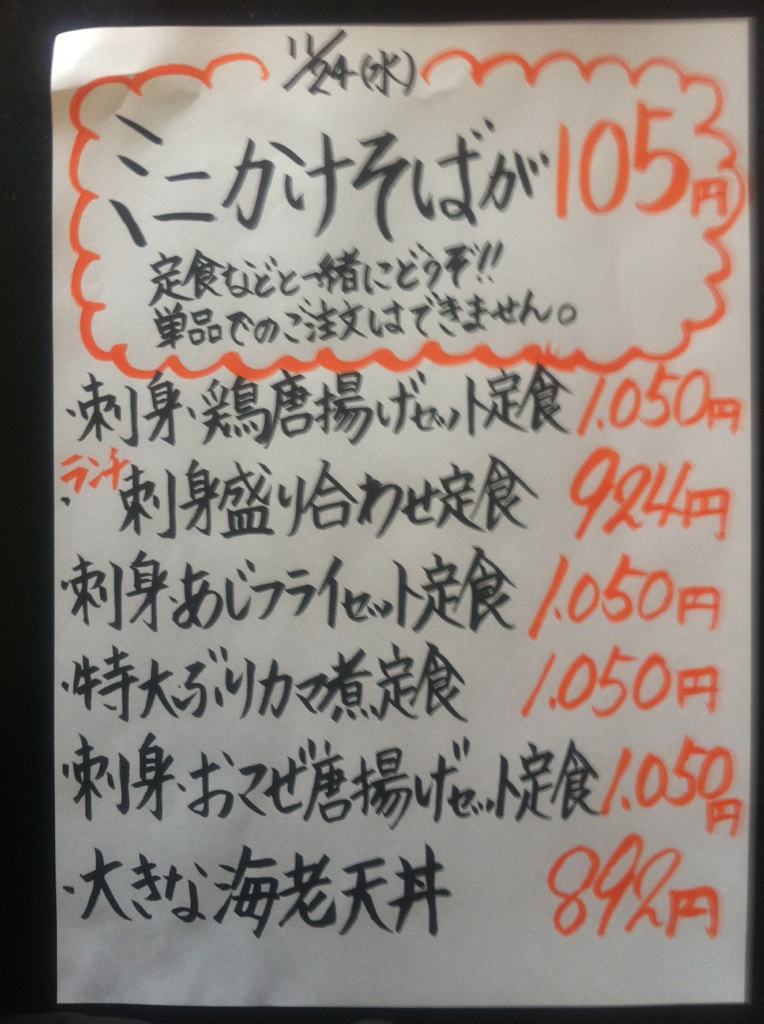 11/24(水)
ミニかけそばが105円
定食などと一緒にどうぞ!!
単品でのご注文はできません。
・刺身・鶏唐揚げセット定食 1.050円
ランチ
・刺身盛り合わせ定食 924円
・刺身・あじフライセット定食 1.050円
・特大ぶりカマ煮定食 1.050円
・刺身・おこぜ唐揚げセット定食 1.050円
・大きな海老天丼 892円